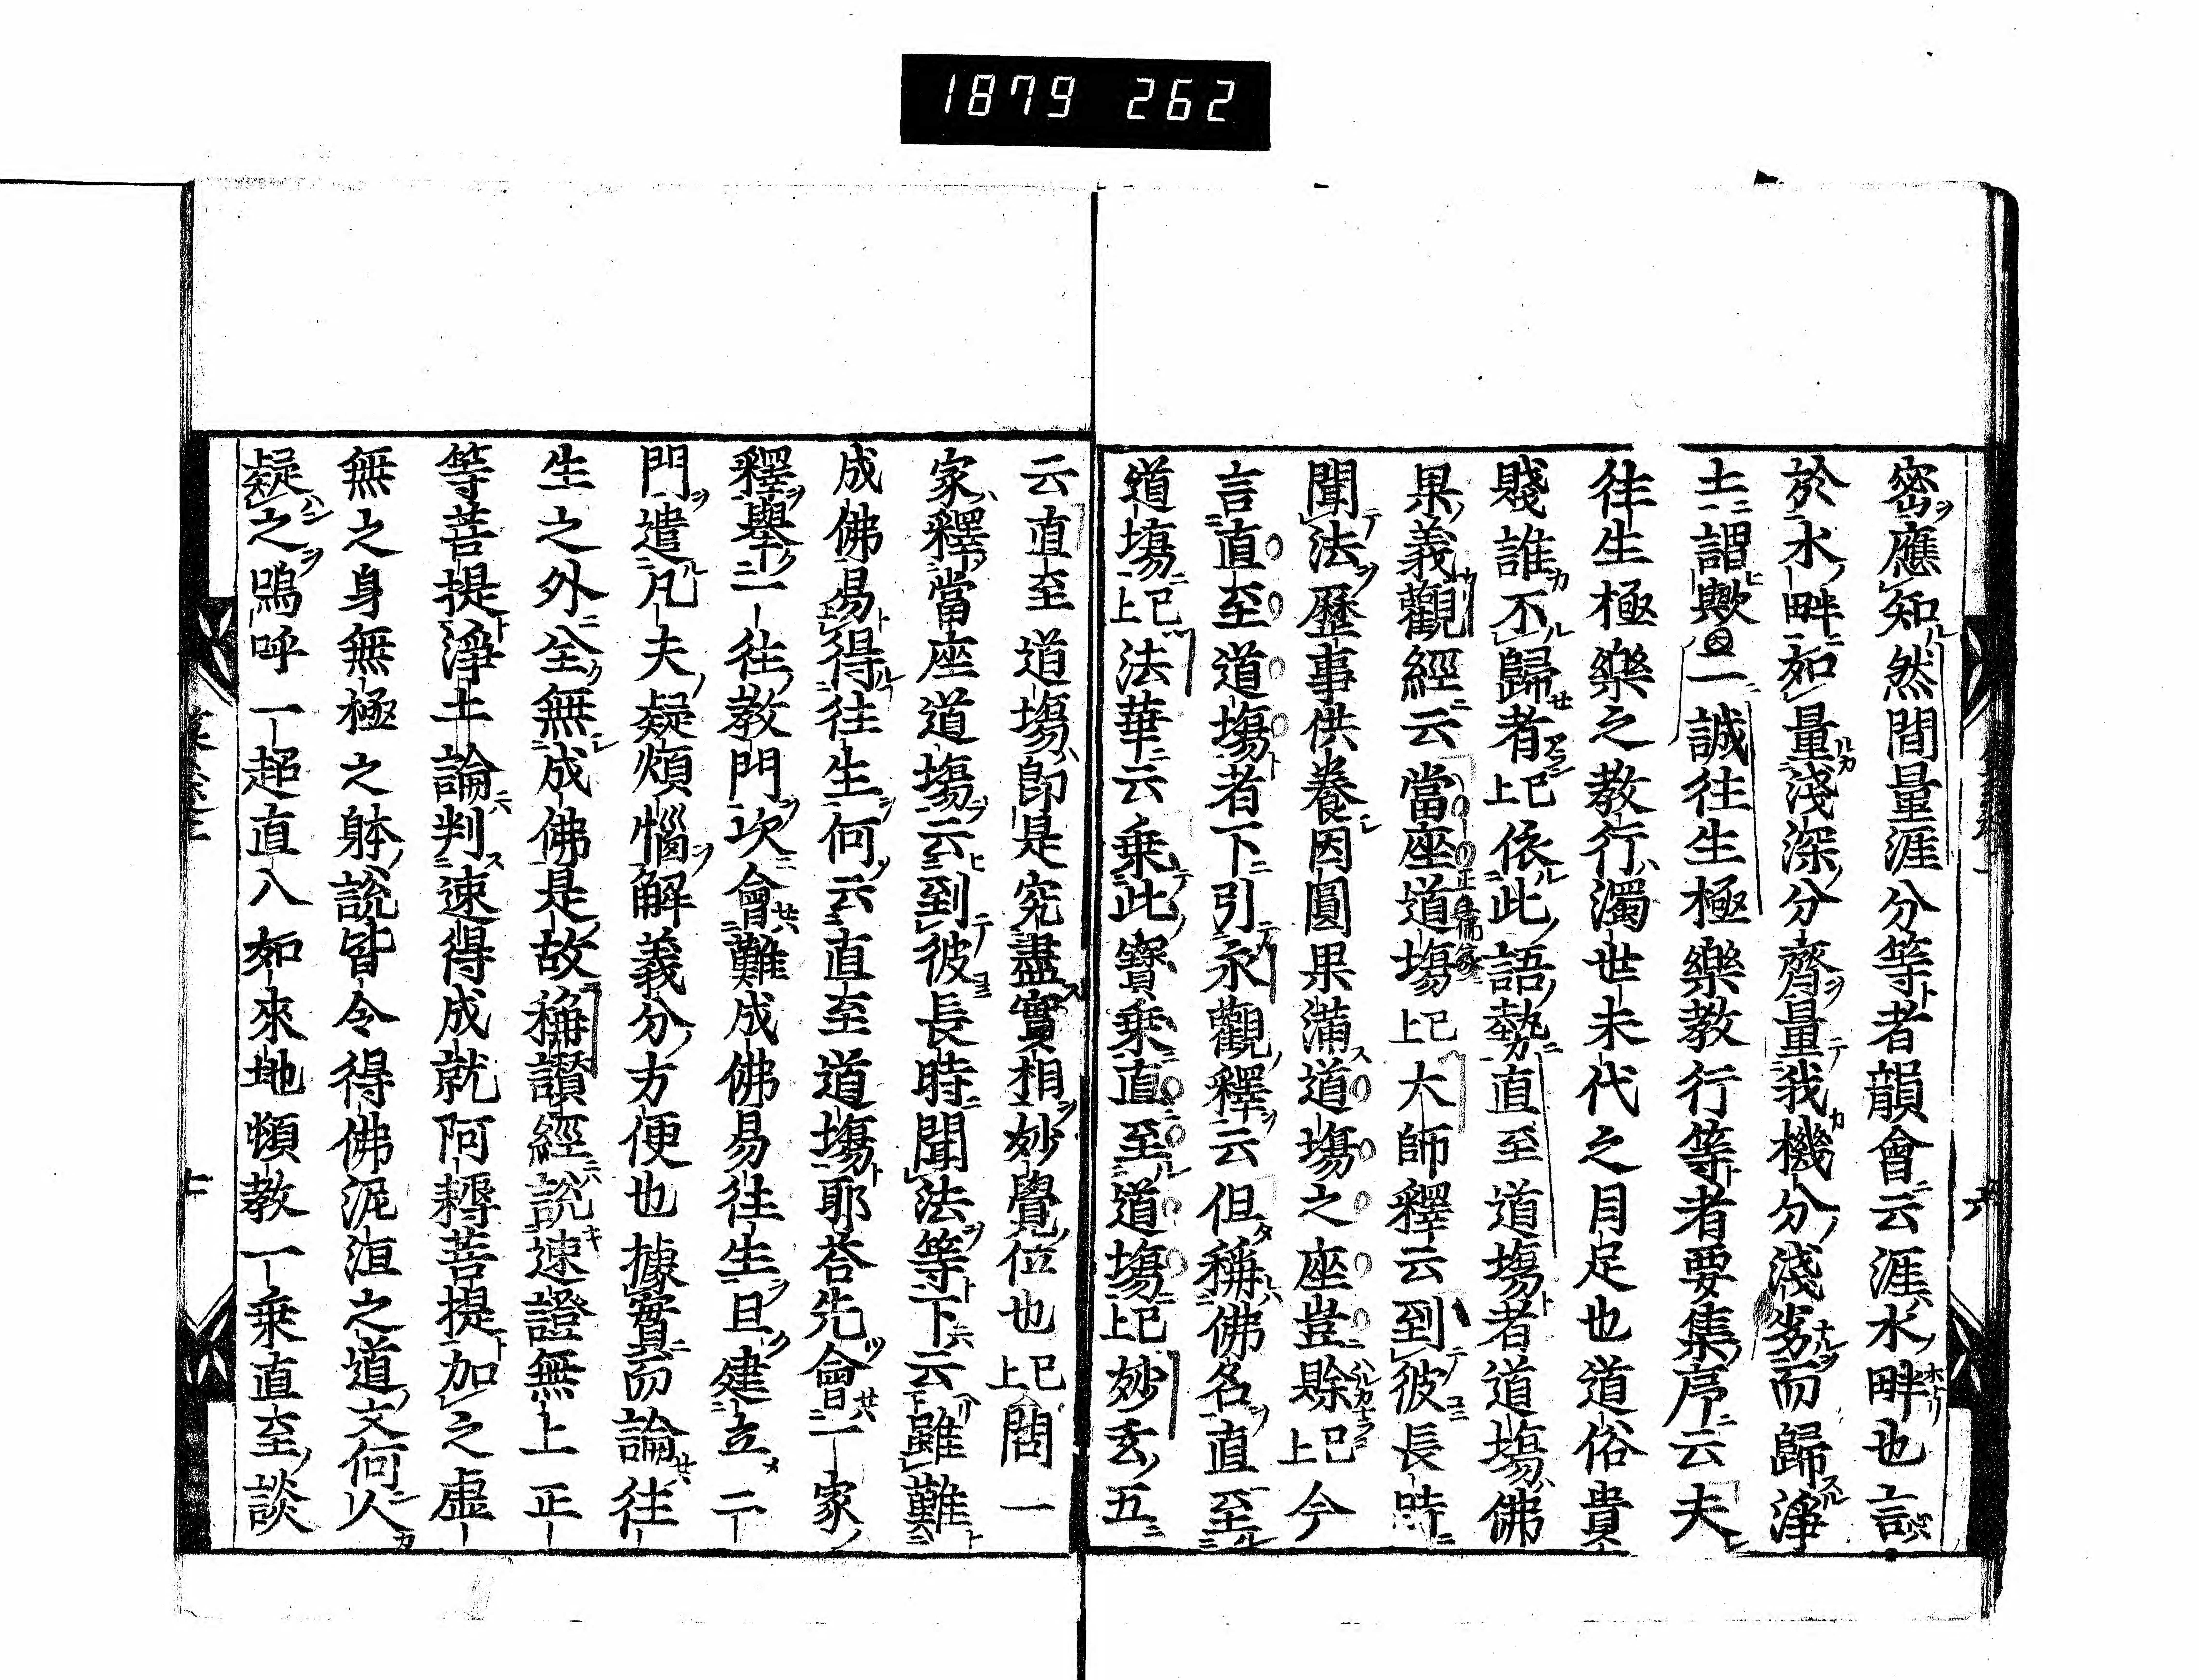 1879 262
密應知然間量涯分等者韻會云涯水畔也言
於水畔如量淺深分齊量我機分淺劣而歸淨
土謂歟一誠往生極樂教行等者要集序云夫
往生極樂之教行濁世末代之目足也道俗貴
賤誰不歸者已上依此語勢直至道塲者道塲佛
果義觀經云當座道塲已上大師釋云到彼長時
聞法歷事供養因圓果滿道塲之座豈賒已上今
言直至道塲者下引永觀釋云但稱佛名直至
道塲已上法華云乗此寶乗直至道塲已上妙玄五
云直至道塲即是究盡實相妙覺位也已上問一
家釋當座道塲云到彼長時聞法等下云雖難
成佛易得往生何云直至道塲耶荅先會一家
釋擧一往教門次會難成佛易往生且建立二
門遣凡夫疑煩惱解義分方便也據實而論往
生之外全無成佛是故稱讃經說速證無上正
等菩提淨土論判速得成就阿耨菩提加之虛
無之身無極之躰說皆令得佛泥洹之道文何人
疑之嗚呼一超直入如來地頓教一乗直至談